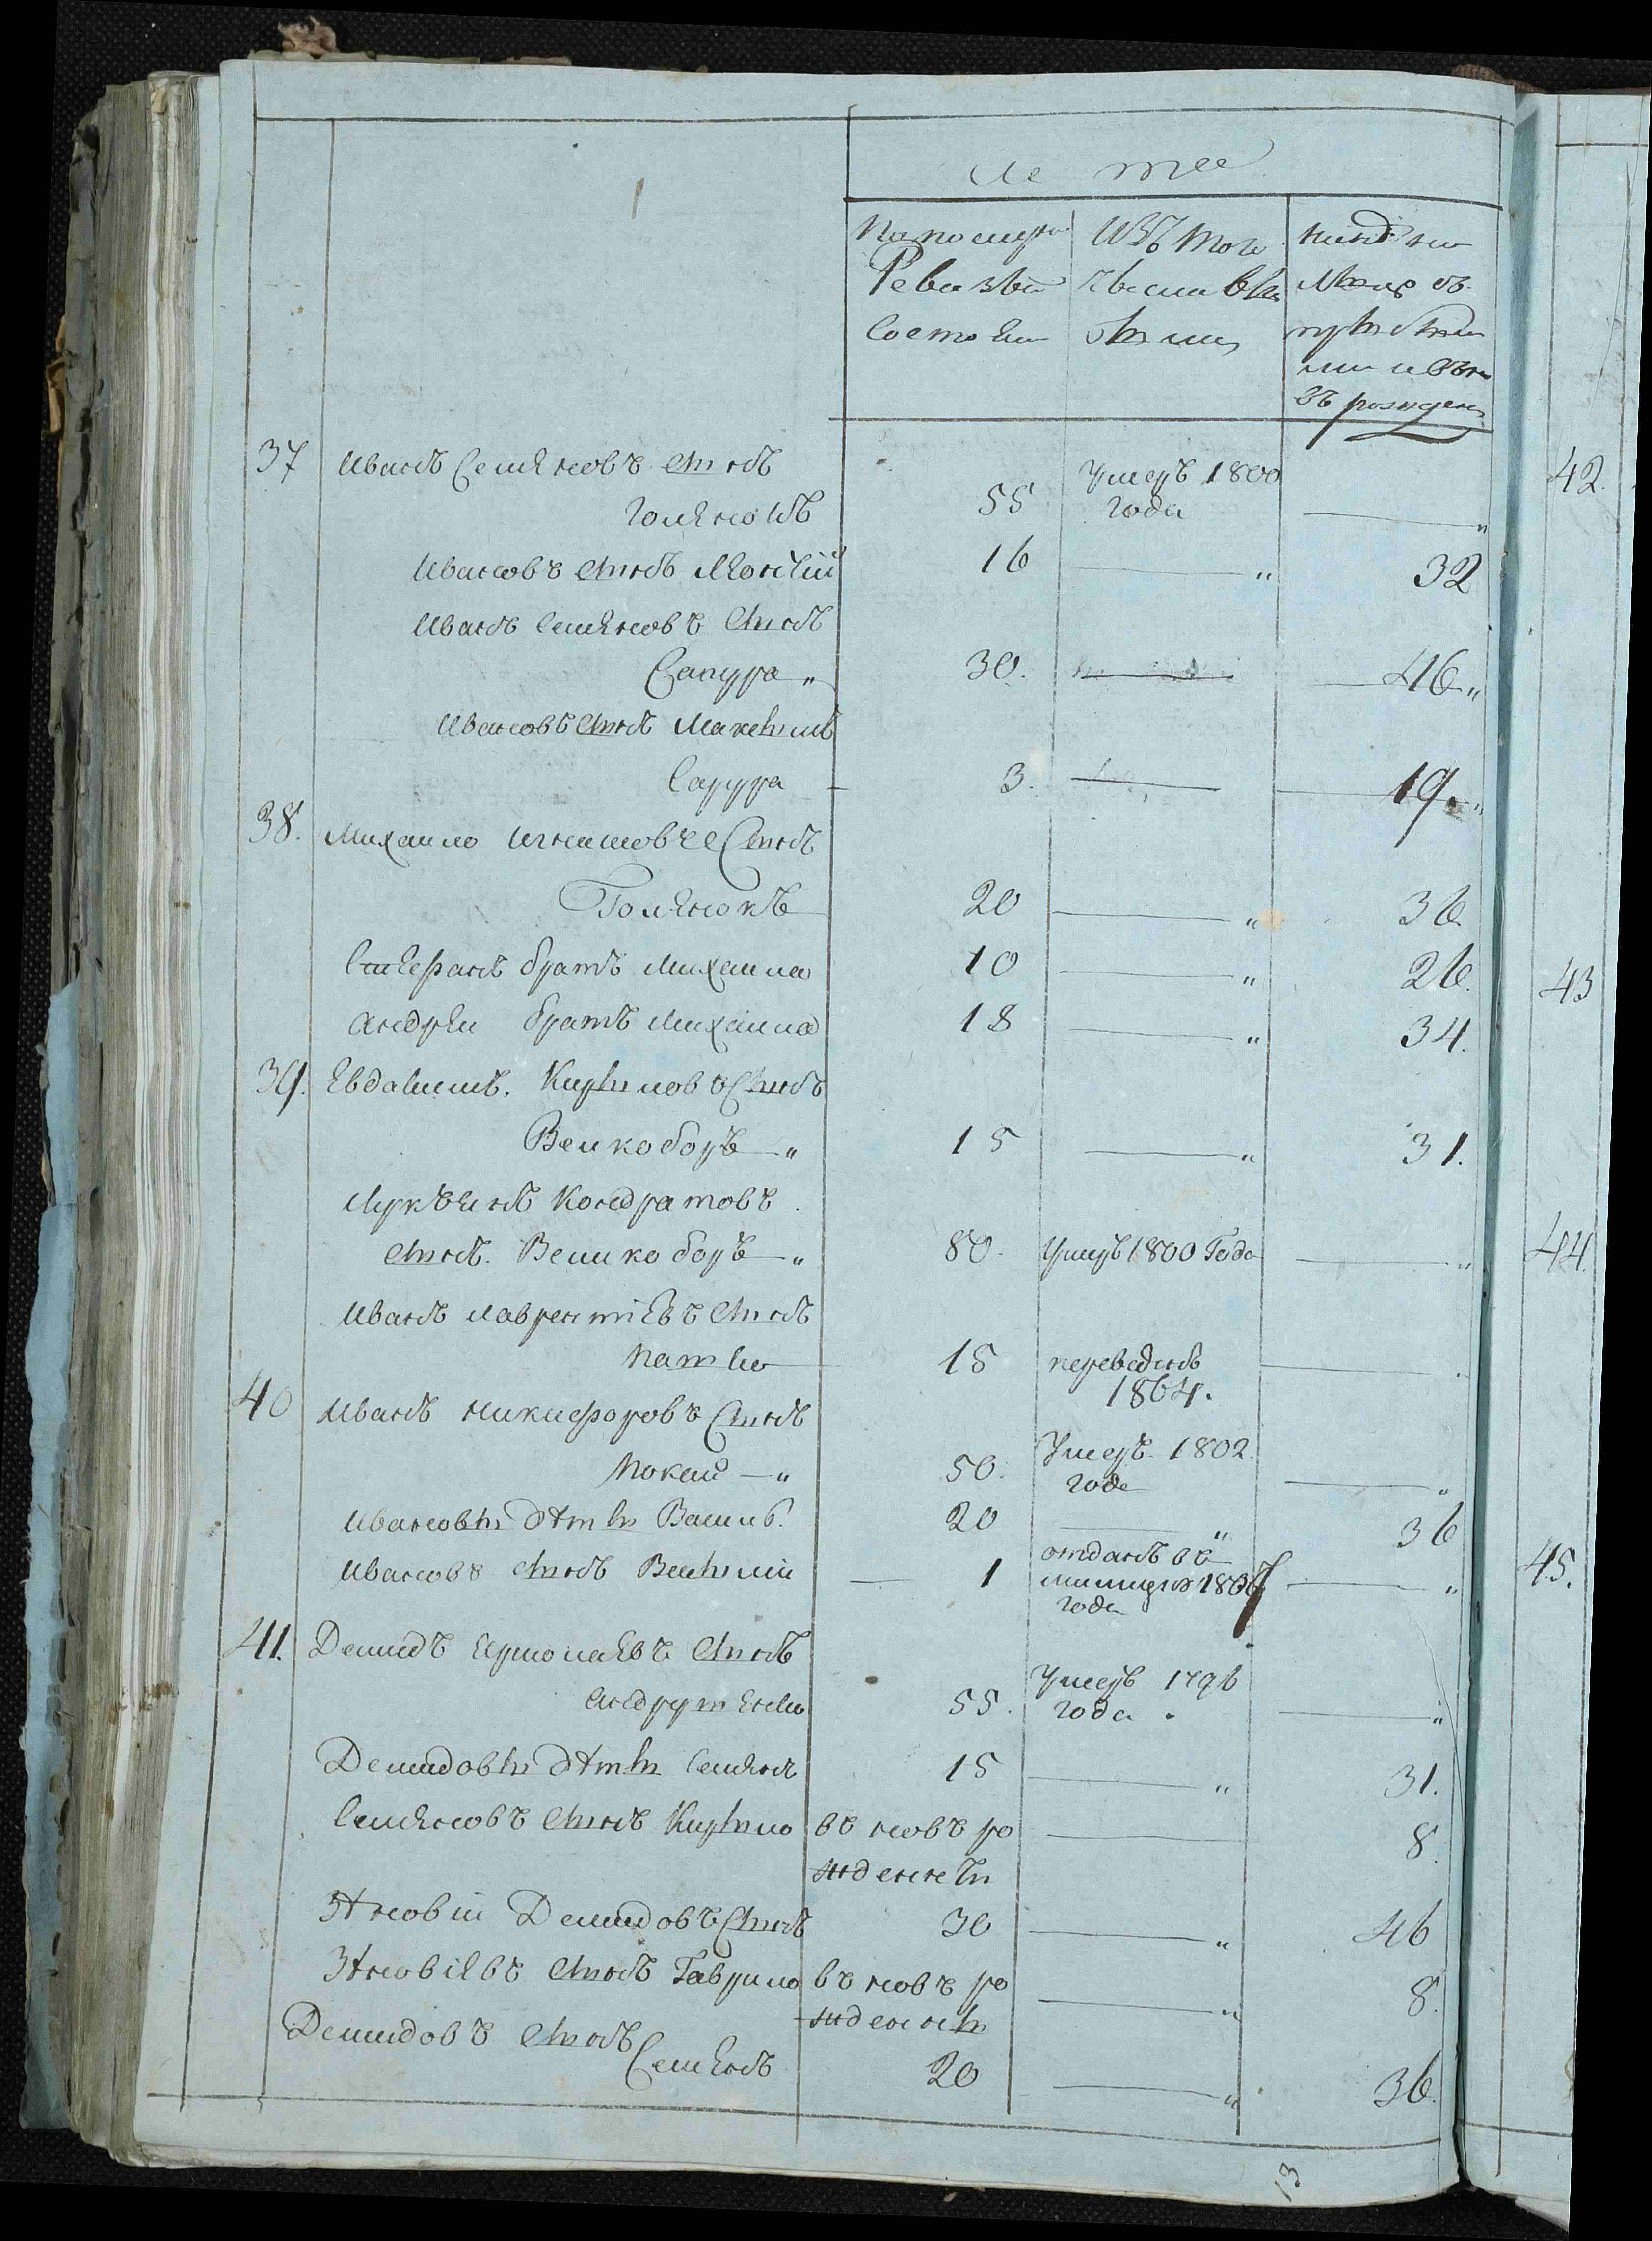 лета
По последн
Ревизьи
Состояли
Изъ того
числа вы
было
ныне на
лицо съ
прибылы
ми и вно
въ рожден
37 Иванъ Семяновъ сынъ
Голяновъ 55 Умеръ 1800
года
Ивановъ сынъ 16 32
Иванъ Семяновъ сынъ
Сапура 30. 46
Ивановъ сынъ Максимъ
Сапура 3. 19.
38. Михаило Игнатовъ сынъ
Голянокъ 20 36
Стефанъ братъ Михаила 10 26.
Андрей братъ Михаила 18 34.
39. Евдакимъ Кирыловъ сынъ
Великоборъ 15 31.
Лукъянъ Кондратовъ
сынъ Великоборъ 80. Умеръ 1800 Года
Иванъ Лаврентіевъ сынъ
15 переведенъ
1804.
40 Иванъ Никифоровъ сынъ
Мокай 50. Умеръ 1802.
года
Ивановы дѣти Василь 20 36
Ивановъ сынъ 1 отданъ въ
милицию 1807
года
41. Демидъ Ермолаевъ сынъ
55. Умеръ 1796
года
Демидовы дѣти Семянъ 15 31.
Семяновъ сынъ Кирыло въ новъ ро 8.
жденны
Зѣновій Демидовъ сынъ 30 46
Зѣновіевъ сынъ Гаврило въ новъ ро 8.
жденны
Демидовъ сынъ
Семенъ 20 36.
13
42.
43
44.
45.